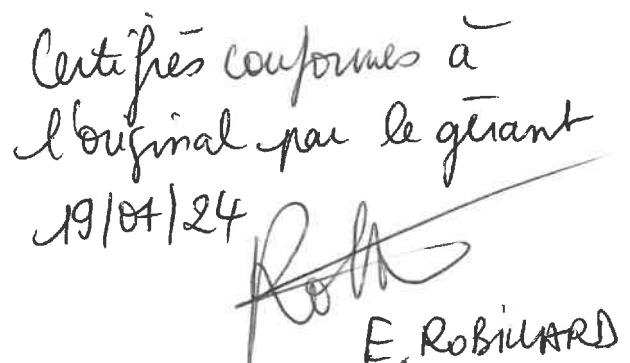 Certifiés conformes à
l'original par le gérant
19/07/24
E. ROBILLARD